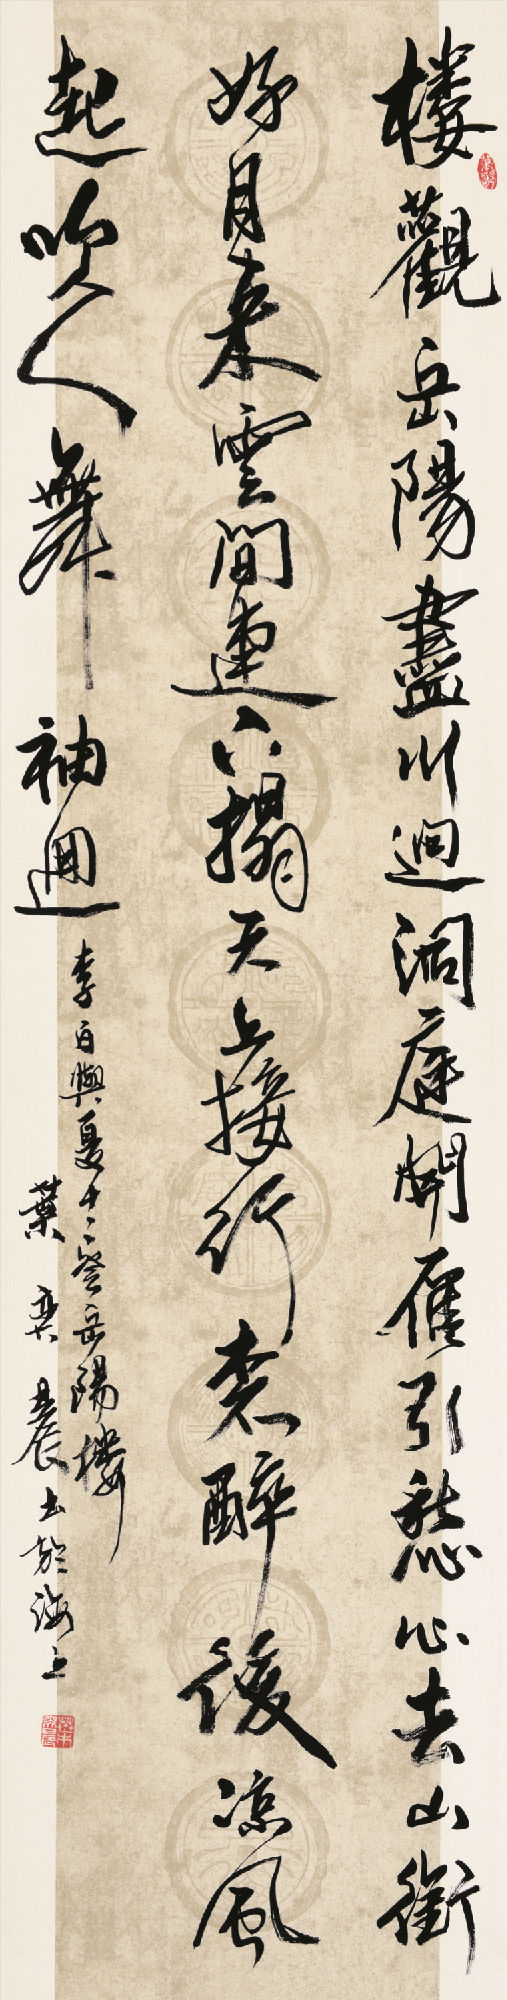 樓觀岳陽盡川迥洞庭開雁引愁心去山銜
好月來雲間連下榻天上接行杯醉後涼風
起吹人舞袖迴
李白與夏十二登岳陽樓
葉奕晨書於海上